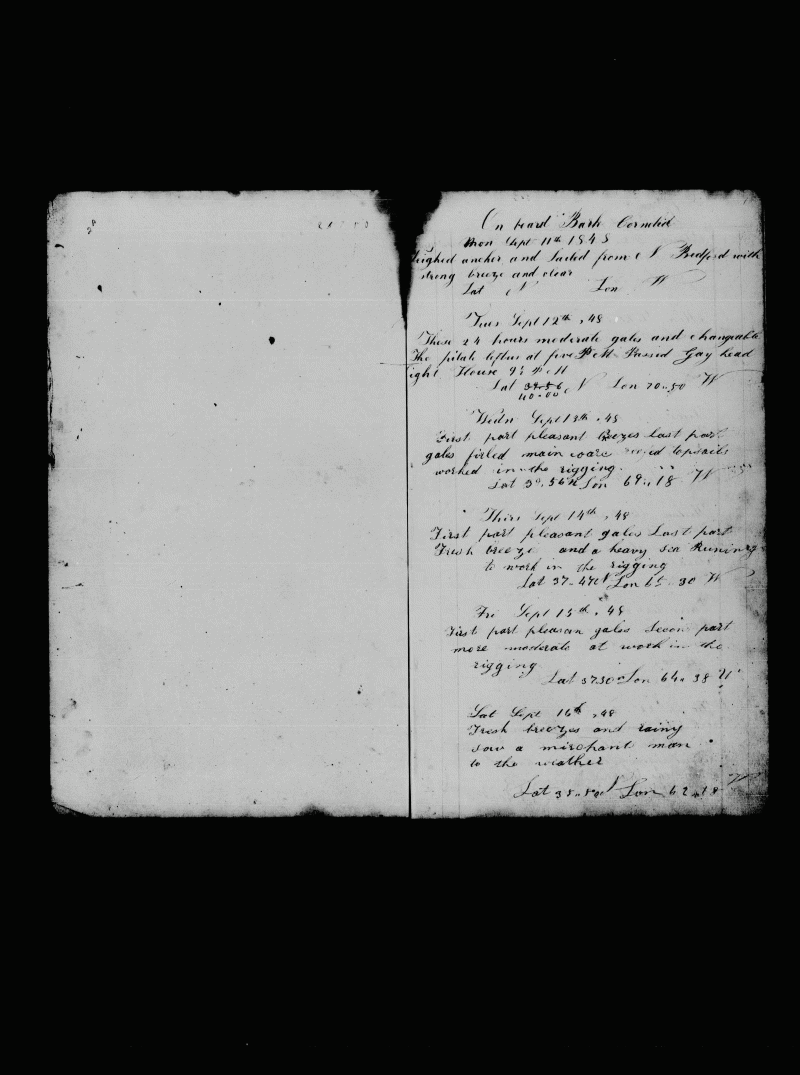 On board Bark Cornelia
Mon Sept 11th 1848
Weighed ancher and Sailed from N Bedford with
strong breeze and clear
Lat N Lon W
Tues Sept 12th , 48
These 24 hours moderate gales and changeable
The pilate leftus at five P M Passed Gay head
light House 9½ P M
Lat 39-56 N Lon 70-50 W
40-00
Wedn Sept 13th , 48
First part pleasant breezes Last part
gales firled main topsails
worked in the rigging.
Lat 56 N Lon 69-18 W
Thirs Sept 14th , 48
First part pleasant gales Last part
Fresh breeze and a heavy sea Runing
to work in the rigging
Lat 37-47 N Lon 65-30 W
Fri Sept 15th , 48
First part pleasan gales Secon part
more moderate at work in the
rigging
Lat 3730 Lon 64-38 W
Sat Sept 16th , 48
Fresh breezes and rainy
saw a mirchant man
to the weather
Lat N Lon 62-18 W